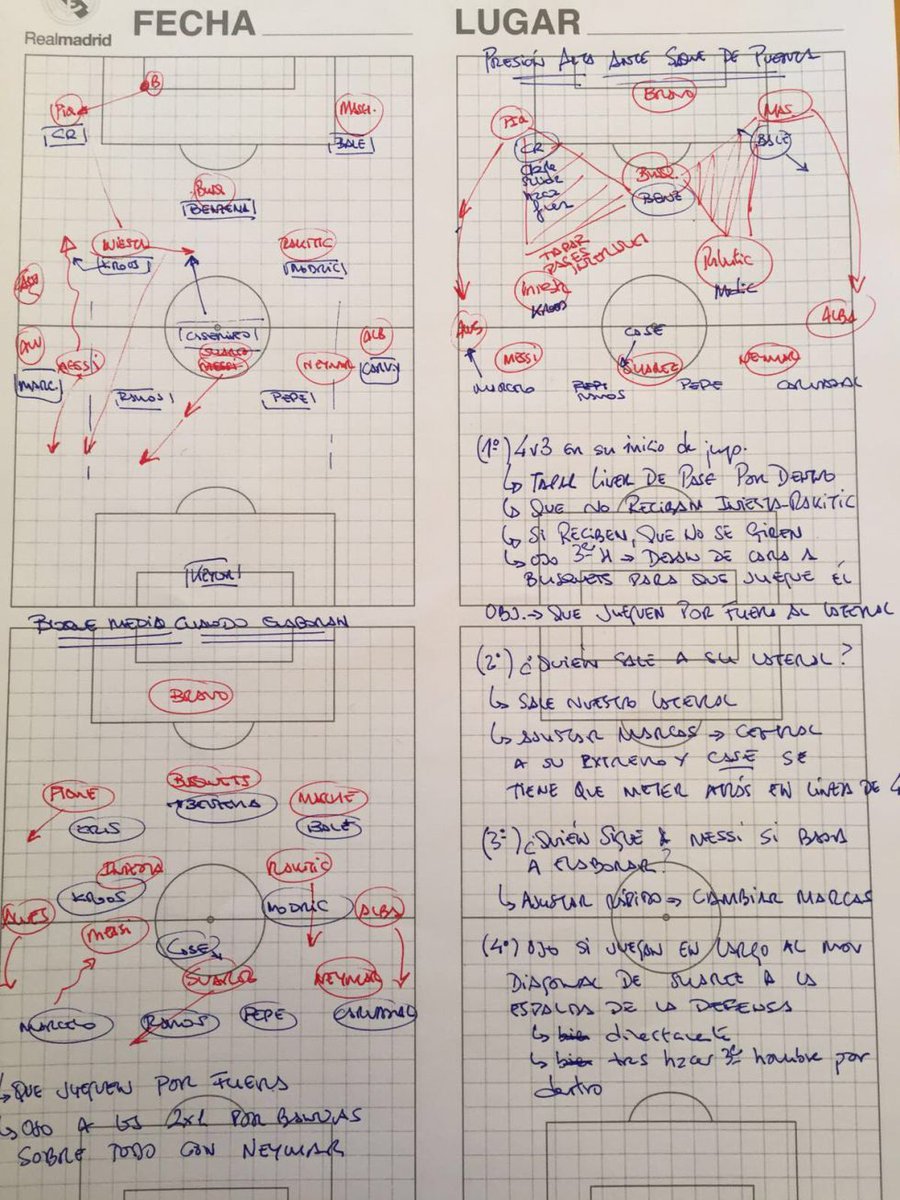 Realmadrid
FECHA
LUGAR
B
PIQ
CR
MASH.
BALE
BUSQ
BENZEMA
INIESTA
KROOS
RAKITIC
MODRIC
CASEMIRO
SUAREZ
MESSI
MESSI
NEYMAR
ALB
CARV
MARC.
RAMOS
PEPE
KEYLOR
PRESIÓN ALTA ANTE SAQUE DE PUERTA
BRAVO
PIQ
MAS.
CR
BALE
BUSQ.
BENZ
TAPAR
PASES
INTERIORES
INIEST
KROOS
RAKITIC
MODRIC
ALVES
ALBA
CASE
MESSI
SUAREZ
NEYMAR
MARCELO
PEPE
RAMOS
PEPE
CARVAJAL
(1º) 4v3 en su inicio de juego.
↳ TAPAR LINEA DE PASE POR DENTRO
↳ QUE NO RECIBAN INIESTA-RAKITIC
↳ SI RECIBEN, QUE NO SE GIREN
↳ OJO 3er H → DEJAN DE CARA A
BUSQUETS PARA QUE JUEGUE ÉL
OBJ. → QUE JUEGUEN POR FUERA AL LATERAL
(2º) ¿QUIÉN SALE A SU LATERAL?
↳ SALE NUESTRO LATERAL
↳ AJUSTAR MARCAS → CENTRAL
A SU EXTREMO Y CASE SE
TIENE QUE METER ATRÁS EN LÍNEA DE 4
(3º) ¿QUIÉN SIGUE A MESSI SI BAJA
A ELABORAR?
↳ AJUSTAR RÁPIDO → CAMBIAR MARCAS
(4º) OJO SI JUEGAN EN LARGO AL MOV
DIAGONAL DE SUAREZ A LA
ESPALDA DE LA DEFENSA
↳ bien directamente
↳ bien tras hacer 3er hombre por
dentro
BLOQUE MEDIO CUANDO ELABORAN
BRAVO
PIQUE
BUSQUETS
BENZEMA
MASCHE
CRIS
BALE
INIESTA
KROOS
RAKITIC
MODRIC
ALVES
ALBA
MESSI
CASE
SUAREZ
NEYMAR
MARCELO
RAMOS
PEPE
CARVAJAL
↳ QUE JUEGUEN POR FUERA
↳ OJO A LOS 2x1 POR BANDAS
SOBRE TODO CON NEYMAR